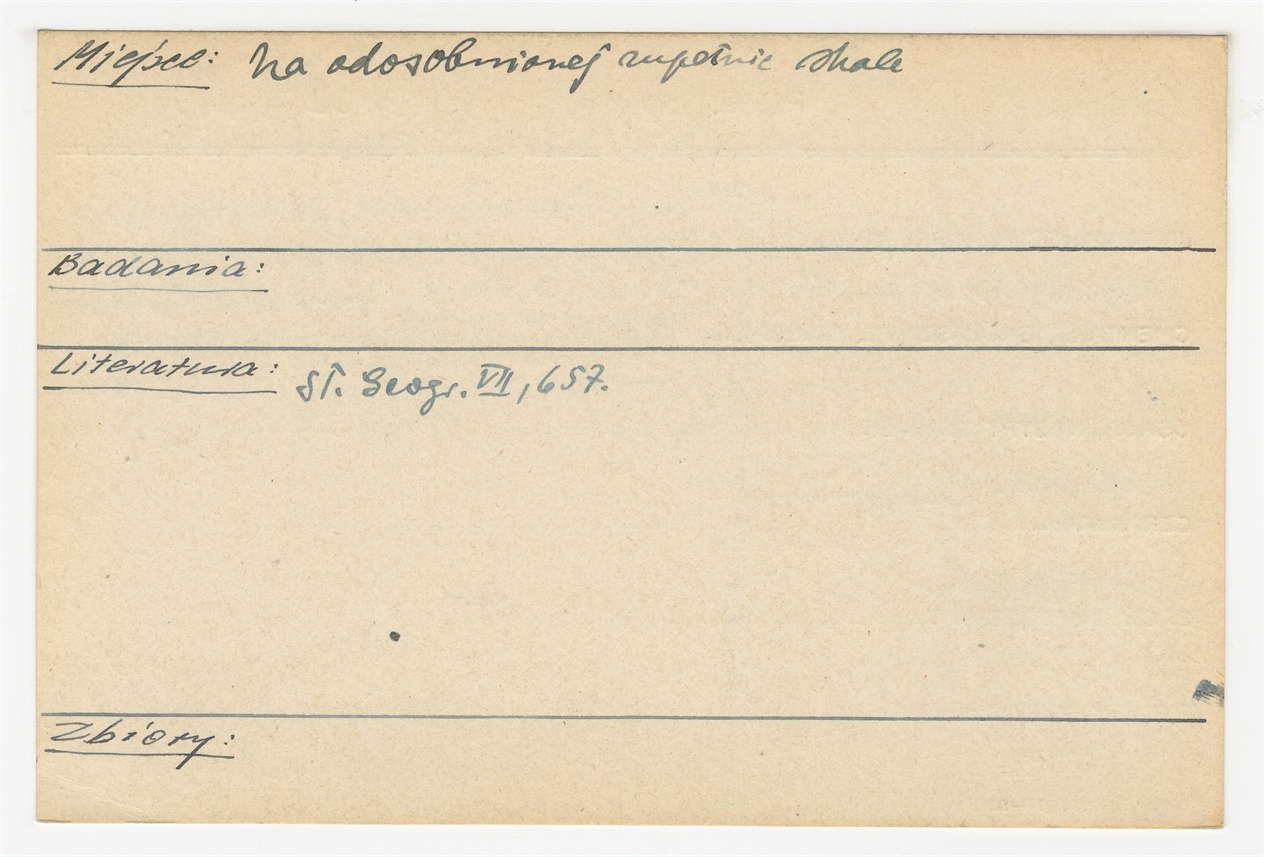 Miejsce: Na odosobnionej zupełnie skale
Badania:
Literatura: Sł. Geogr. VII, 657.
Zbiory: